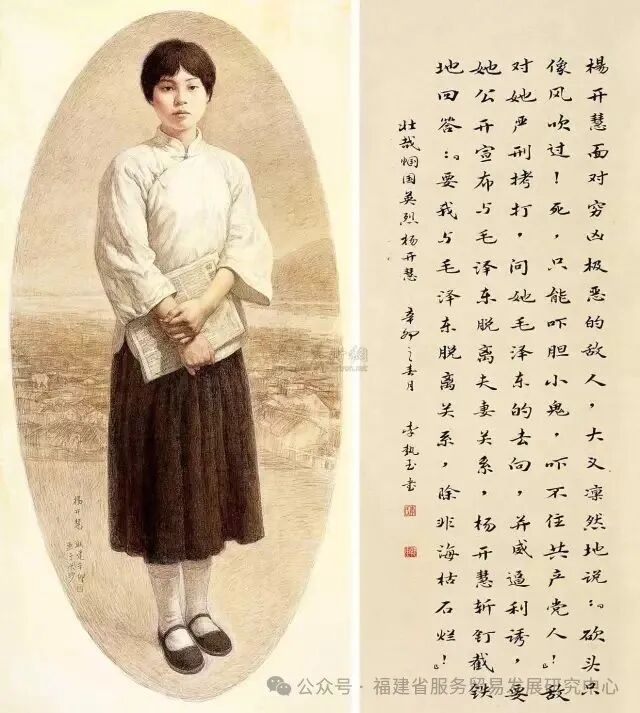 楊开慧面对穷凶极恶的敌人，大义凛然地说：“砍头只
像风吹过！死，只能吓胆小鬼，吓不住共产党人！”敌
对她严刑拷打，问她毛泽东的去向，并威逼利诱，要
她公开宣布与毛泽东脱离夫妻关系，杨开慧斩钉截铁
地回答：“要我与毛泽东脱离关系，除非海枯石烂！”
壮哉 国英烈杨开慧 辛卯之春月 李执玉书
楊开慧
公众号 · 福建省服务贸易发展研究中心